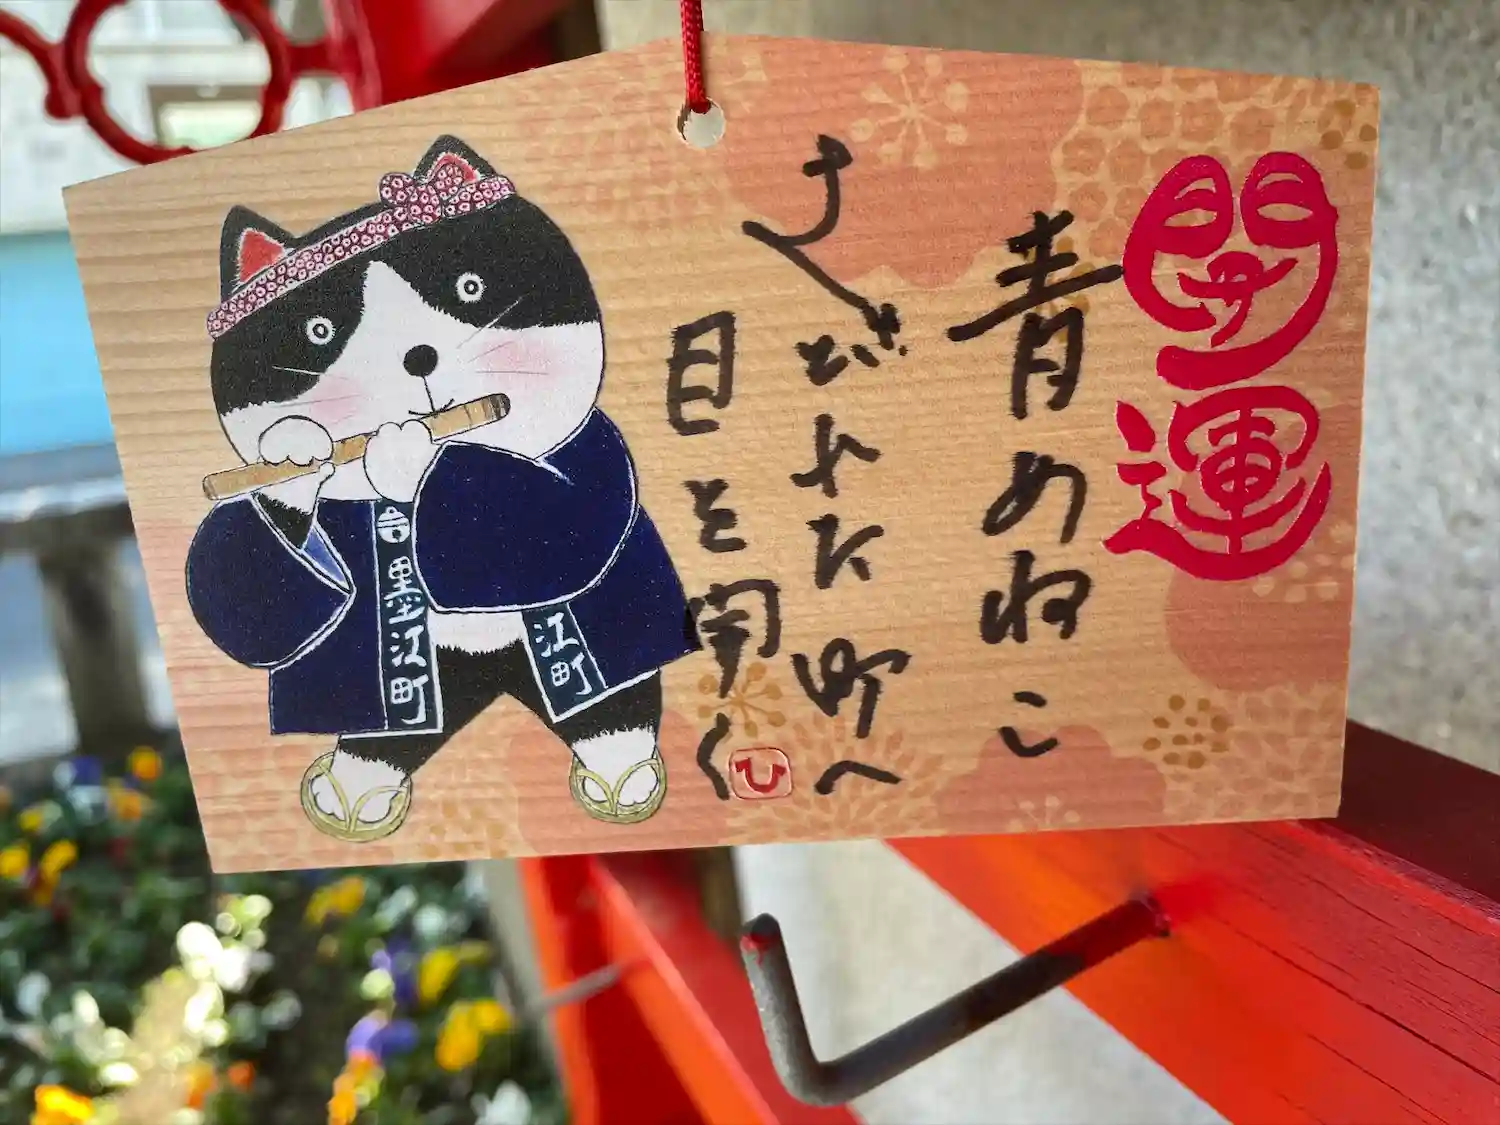 開運
青めねこ
さくどれた町へ
目を開く
ひ
墨江町
江町